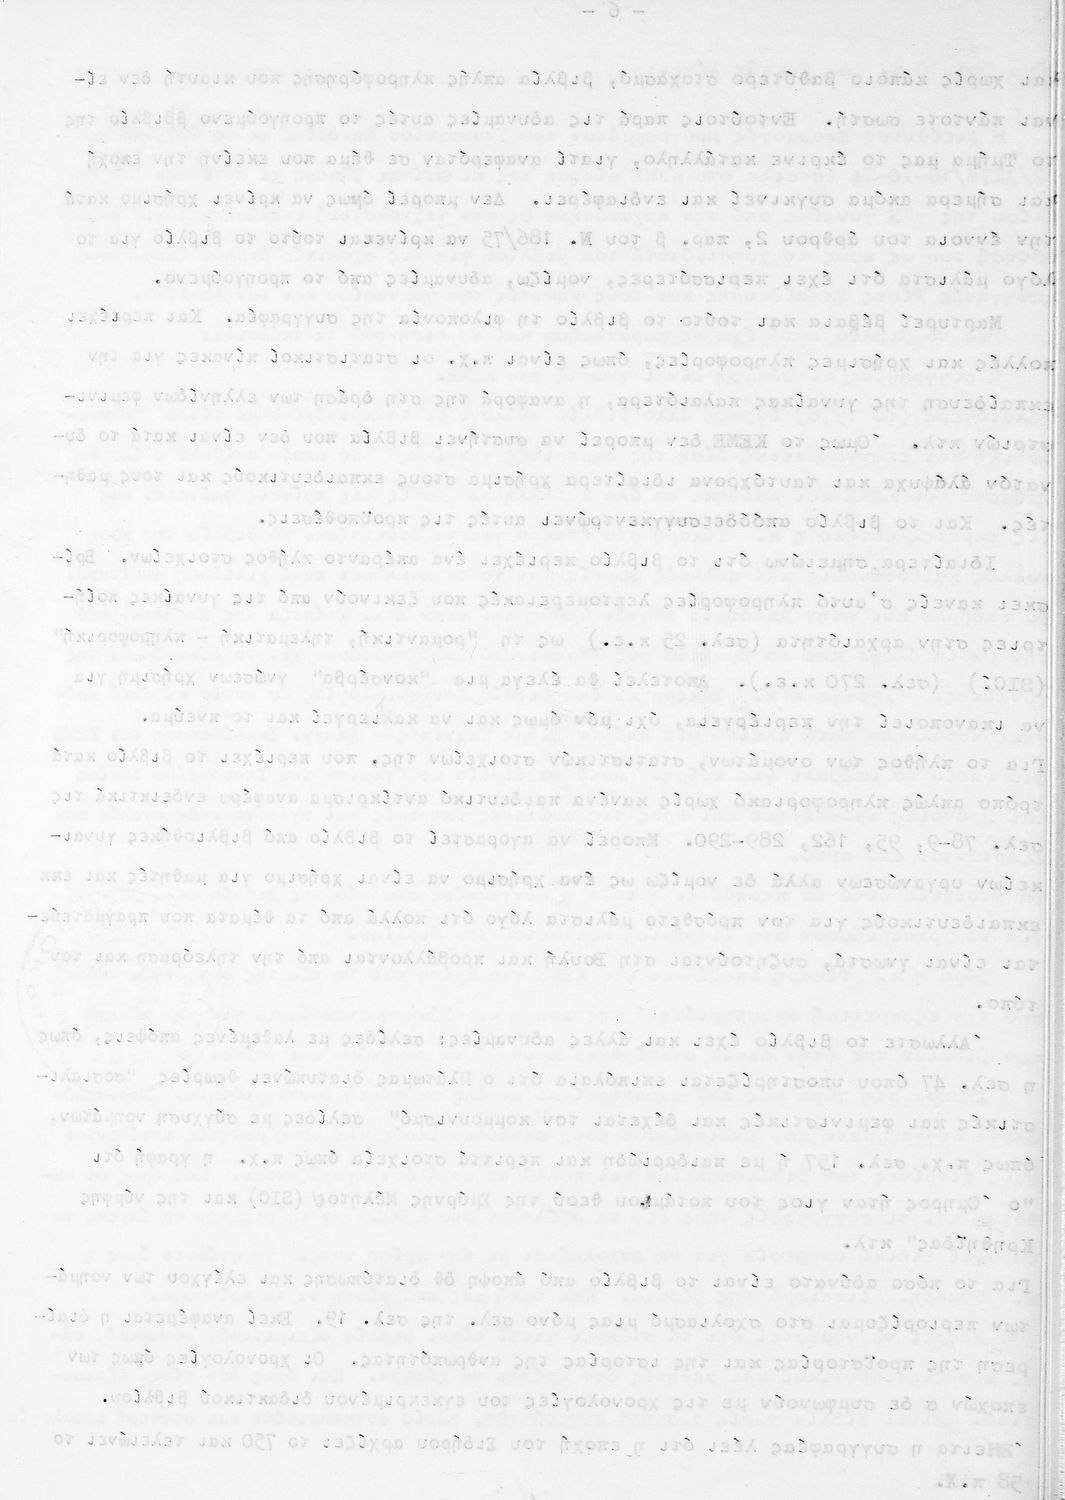 - 6 -
και χωρίς κάποιο βαθύτερο στοχασμό, βιβλία απλής πληροφόρησης που κιαυτή δεν εί-
ναι πάντοτε σωστή. Εντούτοις παρά τις αδυναμίες αυτές το προηγούμενο ββιβλίο της
το Τμήμα μας το έκρινε κατάλληλο, γιατί αναφερόταν σε θέμα που εκείνη την εποχή
και σήμερα ακόμα συγκινεί και ενδιαφέρει. Δεν μπορεί όμως να κρίνει χρήσιμο κατά
την έννοια του άρθρου 2, παρ. β του Ν. 186/75 να κρίνεται τούτο το βιβλίο για το
λόγο μάλιστα ότι έχει περισσότερες, νομίζω, αδυναμίες από το προηγούμενο.
Μαρτυρεί βέβαια και τούτο το βιβλίο τη φιλοπονία της συγγραφέα. Και περιέχει
πολλές και χρήσιμες πληροφορίες, όπως είναι π.χ. οι στατιστικοί πίνακες για την
εκπαίδευση της γυναίκας παλαιότερα, η αναφορά της στη δράση των ελληνίδων φεμινι-
στριών κτλ. Όμως το ΚΕΜΕ δεν μπορεί να συστήνει βιβλία που δεν είναι κατά το δυ-
νατόν άλάψυχα και ταυτόχρονα ιδιαίτερα χρήσιμα στους εκπαιδευτικούς και τους μαθη-
τές. Και το βιβλίο απόδδεσυγγκεντρώνει αυτές τις προϋποθέσεις.
Ιδιαίτερα σημειώνω ότι το βιβλίο περιέχει ένα απέραντο πλήθος στοιχείων. Βρί-
σκει κανείς σ'αυτό πληροφορίες λεπτομερειακές που ξεκινούν από τις γυναίκες ποιή-
τριες στην αρχαιότητα (σελ. 25 κ.ε.) ως τη "ρομαντική, τηλεματική - πληροφορική"
(SIC!) (σελ. 270 κ.ε.). Αποτελεί θα έλεγα μια "κονσέρβα" γνώσεων χρήσιμη για
να ικανοποιεί την περιέργεια, όχι μόν όμως και να καλιεργεί και το πνεύμα.
Για το πλήθος των ονομάτων, στατιστικών στοιχείων της, που περιέχει το βιβλίο κατά
τρόπο απλώς πληροφοριακό χωρίς κανένα παιδευτικό αντίκρισμα αναφέρω ενδεικτικά τις
σελ. 78-9, 95, 162, 289-290. Μπορεί να αγοραστεί το βιβλίο από βιβλιοθήκες γυναι-
κείων οργανώσεων αλλά δε νομίζω ως ένα χρήσιμο να είναι χρήσιμο για μαθητές και εκπ
εκπαιδευτικούς για τον πρόσθετο μάλιστα λόγο ότι πολλά από τα θέματα που πραγματεύε-
ται είναι γνωστά, συζητούνται στη Βουλή και προβάλλονται από την τηλεόραση και τον
τύπο.
Άλλωστε το βιβλίο έχει και άλλες αδυναμίες: σελίδες με λαθεμένες απόψεις, όπως
η σελ. 47 όπου υποστηρίζεται επιπόλαια ότι ο Πλάτωμας διατυπώνει θεωρίες "σοσιαλι-
στικές και φεμινιστικές και δέχεται τον κομμουνισμό" σελίδες με σύγχυση νοημάτων,
όπως π.χ. σελ. 157 ή με παιδαριώδη και περιττά στοιχεία όπως π.χ. η γραφή ότι
"ο Όμηρος ήταν γιος του ποτάμιου θεού της Σμύρνης Μέλητος (SIC) και της νύμφης
Κρηθηΐδας" κτλ.
Για το πόσο αδύνατο είναι το βιβλίο από άποψη δθ διατύπωσης και ελέγχου των νοημά-
των περιορίζομαι στο σχολιασμό μιας μόνο σελ. της σελ. 19. Εκεί αναφέρεται η διαί-
ρεση της προϊστορίας και της ιστορίας της ανθρωπότητας. Οι χρονολογίες όμως των
εποχών σ δε συμφωνούν με τις χρονολογίες του εγκεκριμένου διδακτικού βιβλίου.
Έπειτα η συγγραφέας λέει ότι η εποχή του Σιδήρου αρχίζει το 750 και τελειώνει το
58 π.Χ.